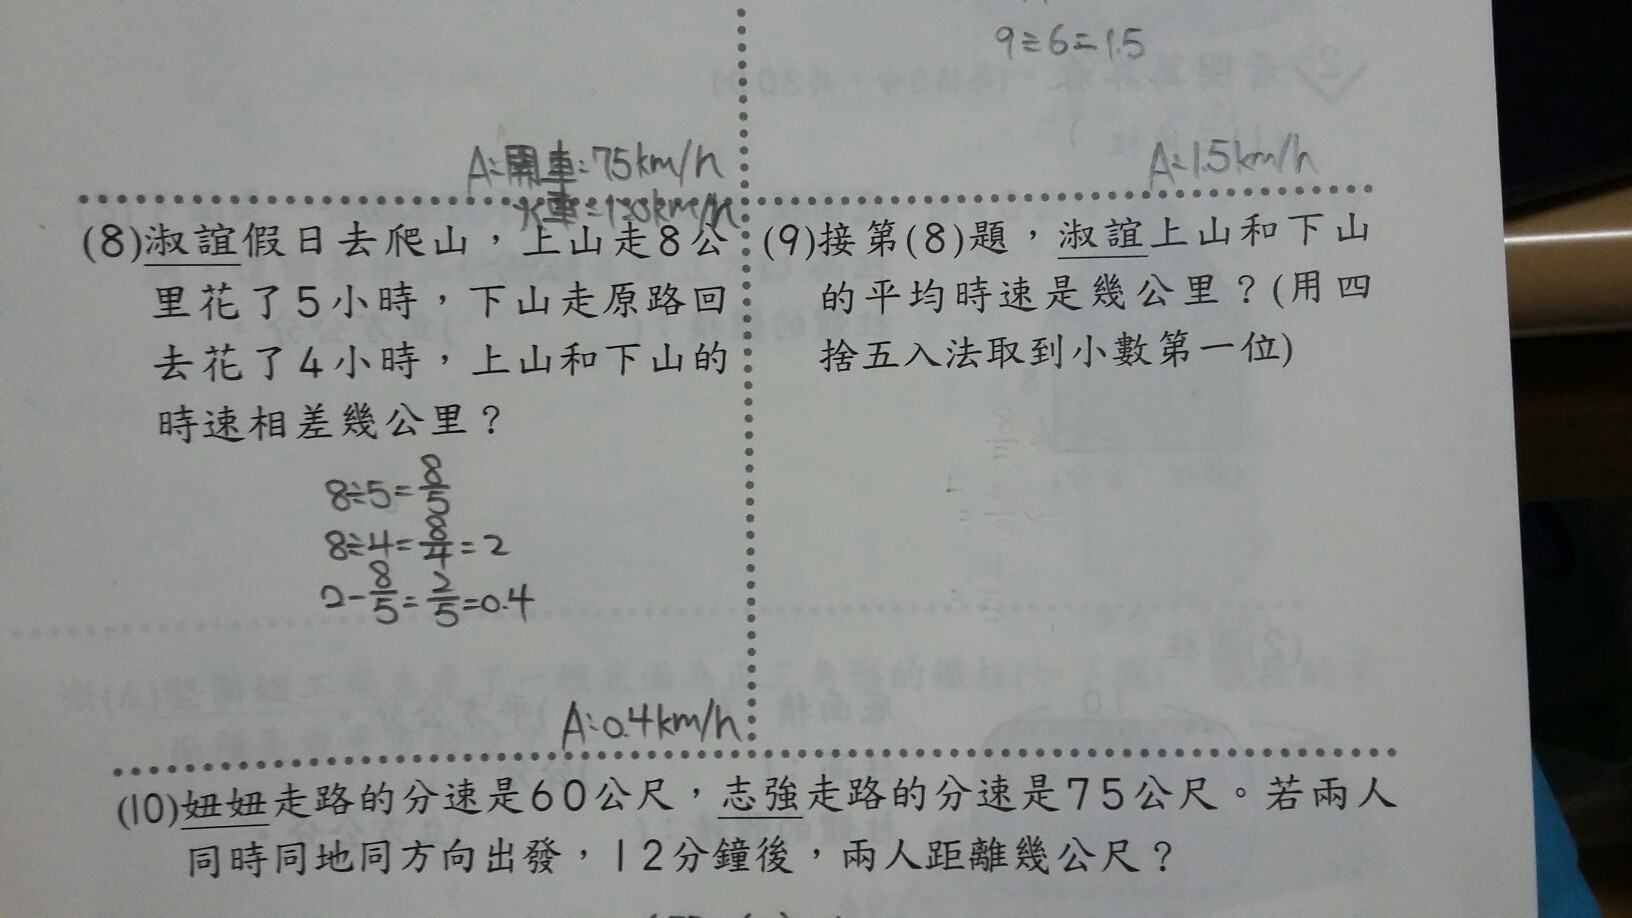 9÷6=1.5
A:開車:75km/h
火車:120km/h
A:1.5km/h
(8)淑誼假日去爬山，上山走8公
里花了5小時，下山走原路回
去花了4小時，上山和下山的
時速相差幾公里？
8÷5=8/5
8÷4=8/4=2
2-8/5=2/5=0.4
A:0.4km/h
(9)接第(8)題，淑誼上山和下山
的平均時速是幾公里？(用四
捨五入法取到小數第一位)
(10)妞妞走路的分速是60公尺，志強走路的分速是75公尺。若兩人
同時同地同方向出發，12分鐘後，兩人距離幾公尺？